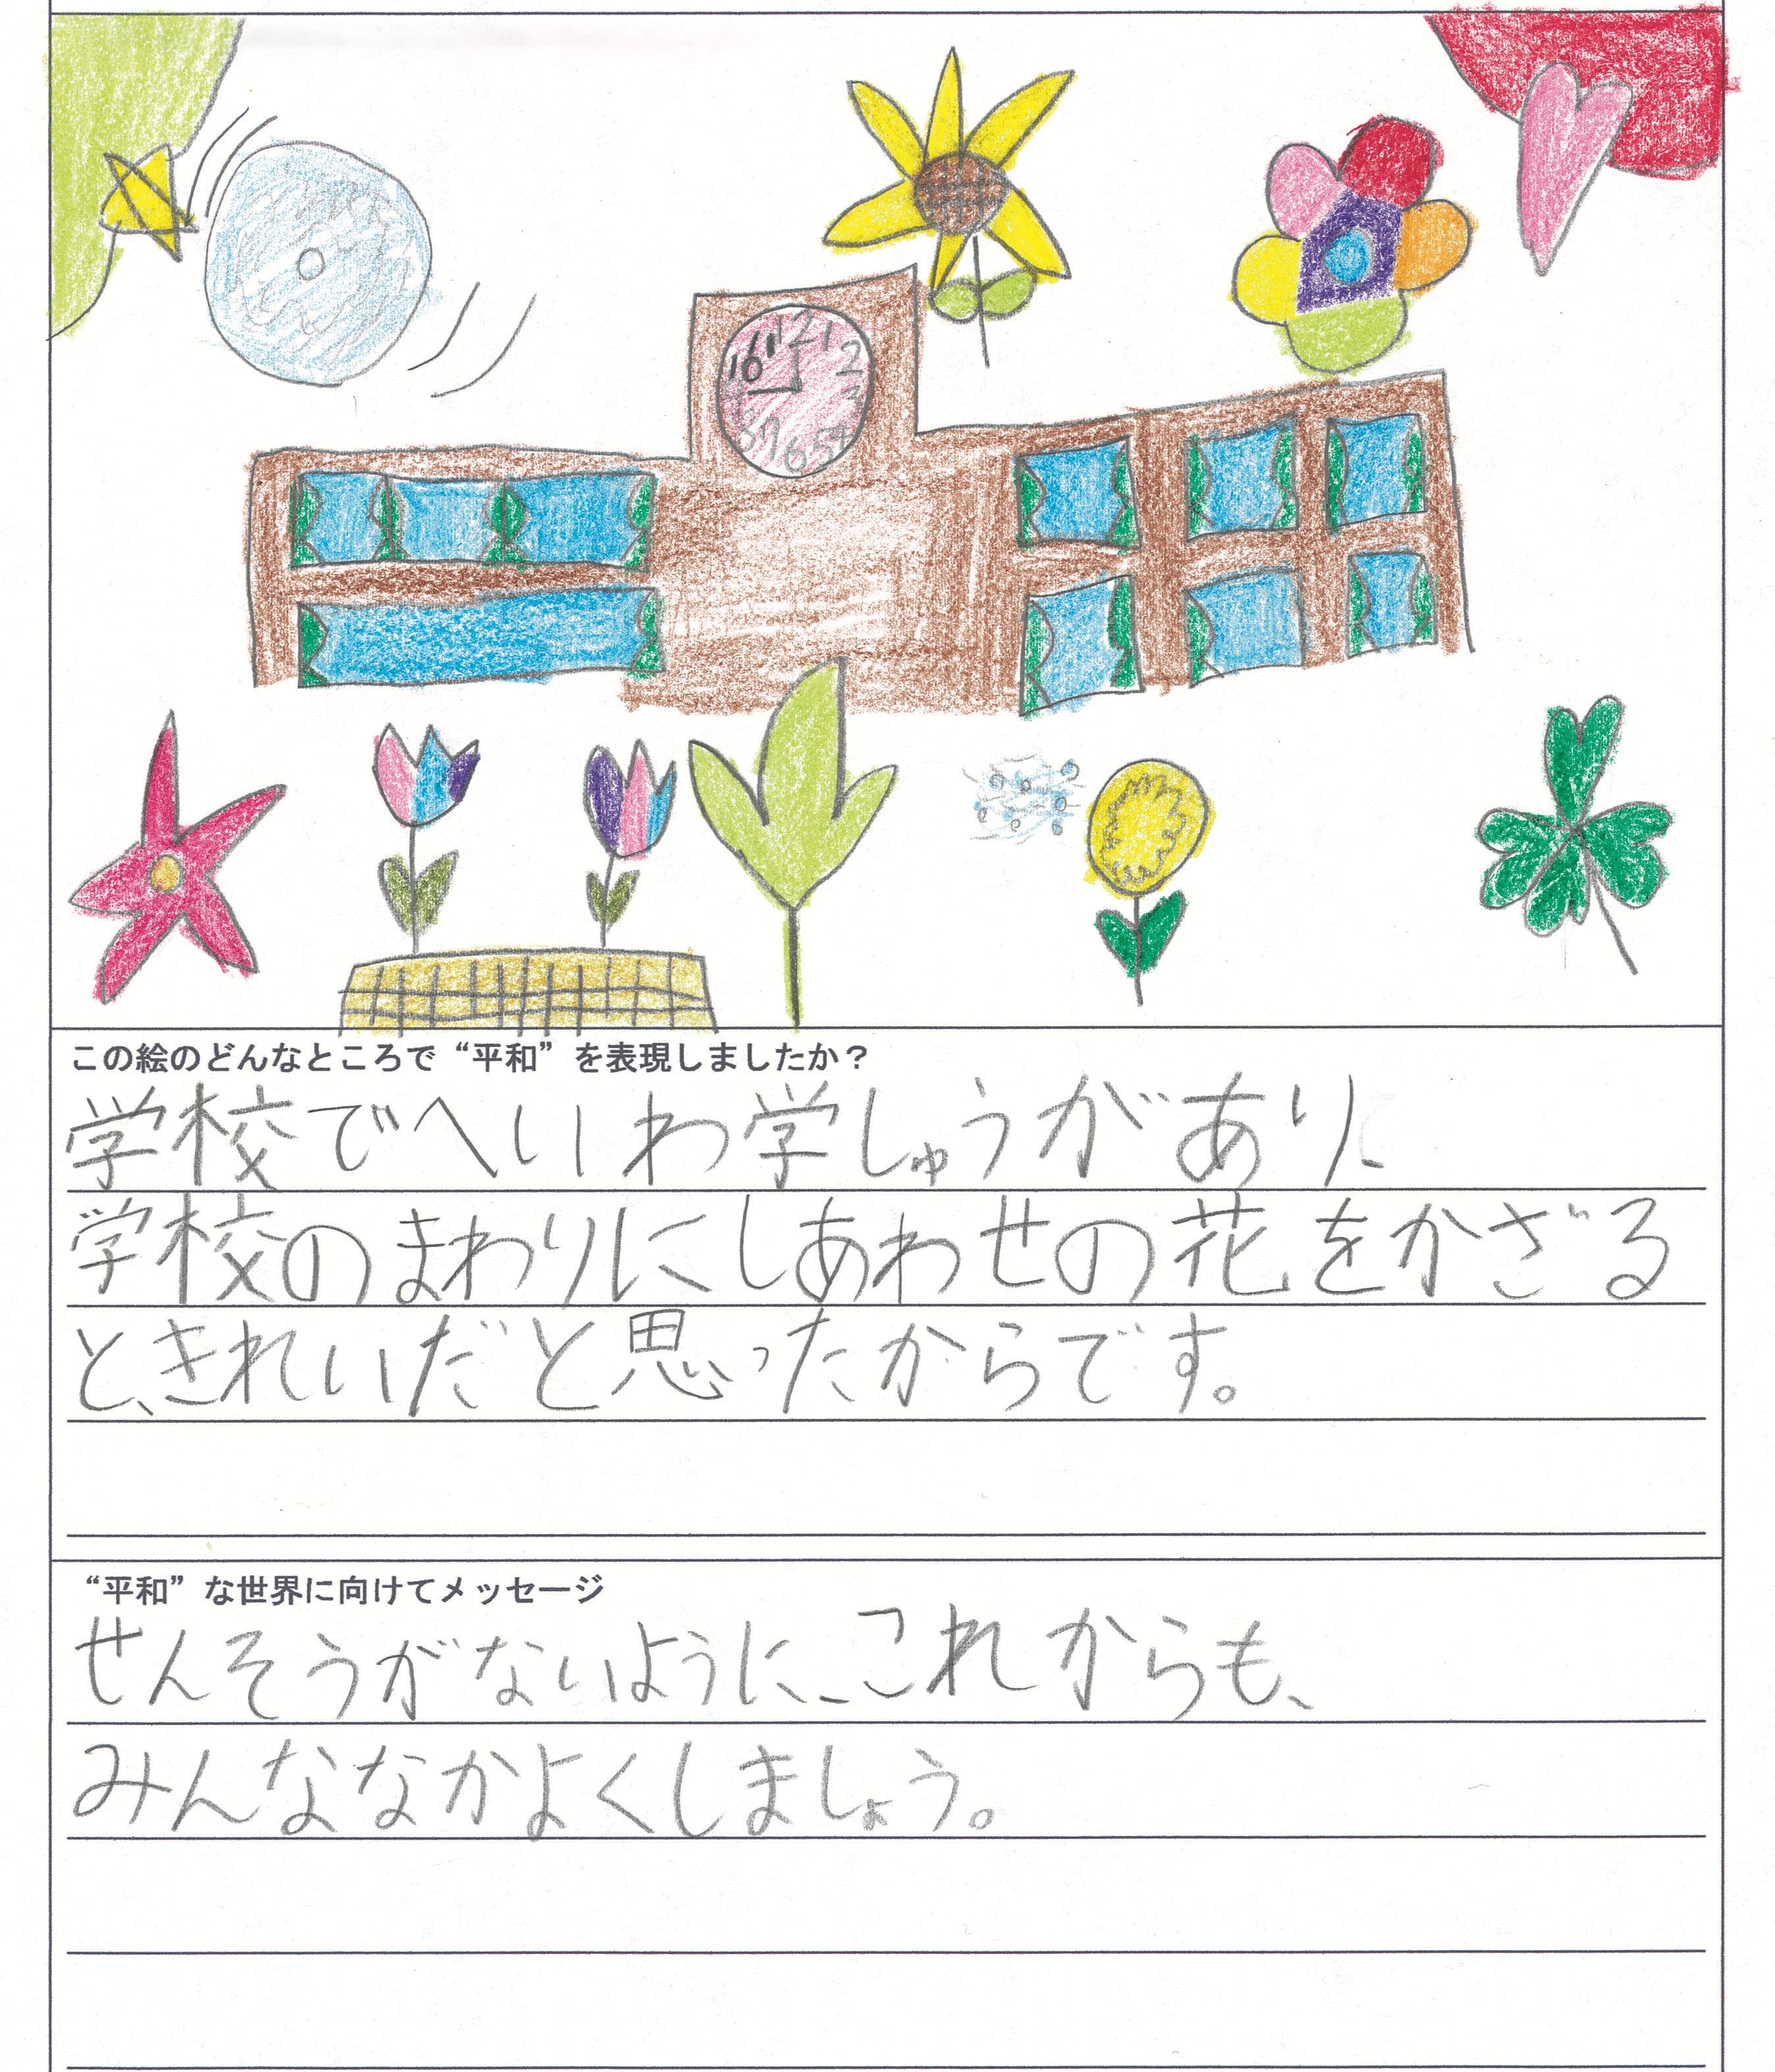 12 1 2 3 4 5 6 7 8 10 11
この絵のどんなところで“平和”を表現しましたか？
学校でへいわ学しゅうがあり、
学校のまわりにしあわせの花をかざる
と、きれいだと思ったからです。
“平和”な世界に向けてメッセージ
せんそうがないように、これからも、
みんななかよくしましょう。